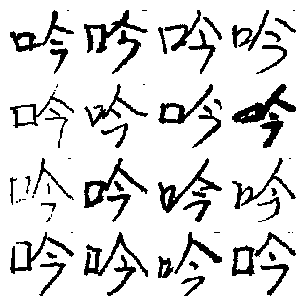 吟吟吟吟
吟吟吟吟
吟吟吟吟
吟吟吟吟